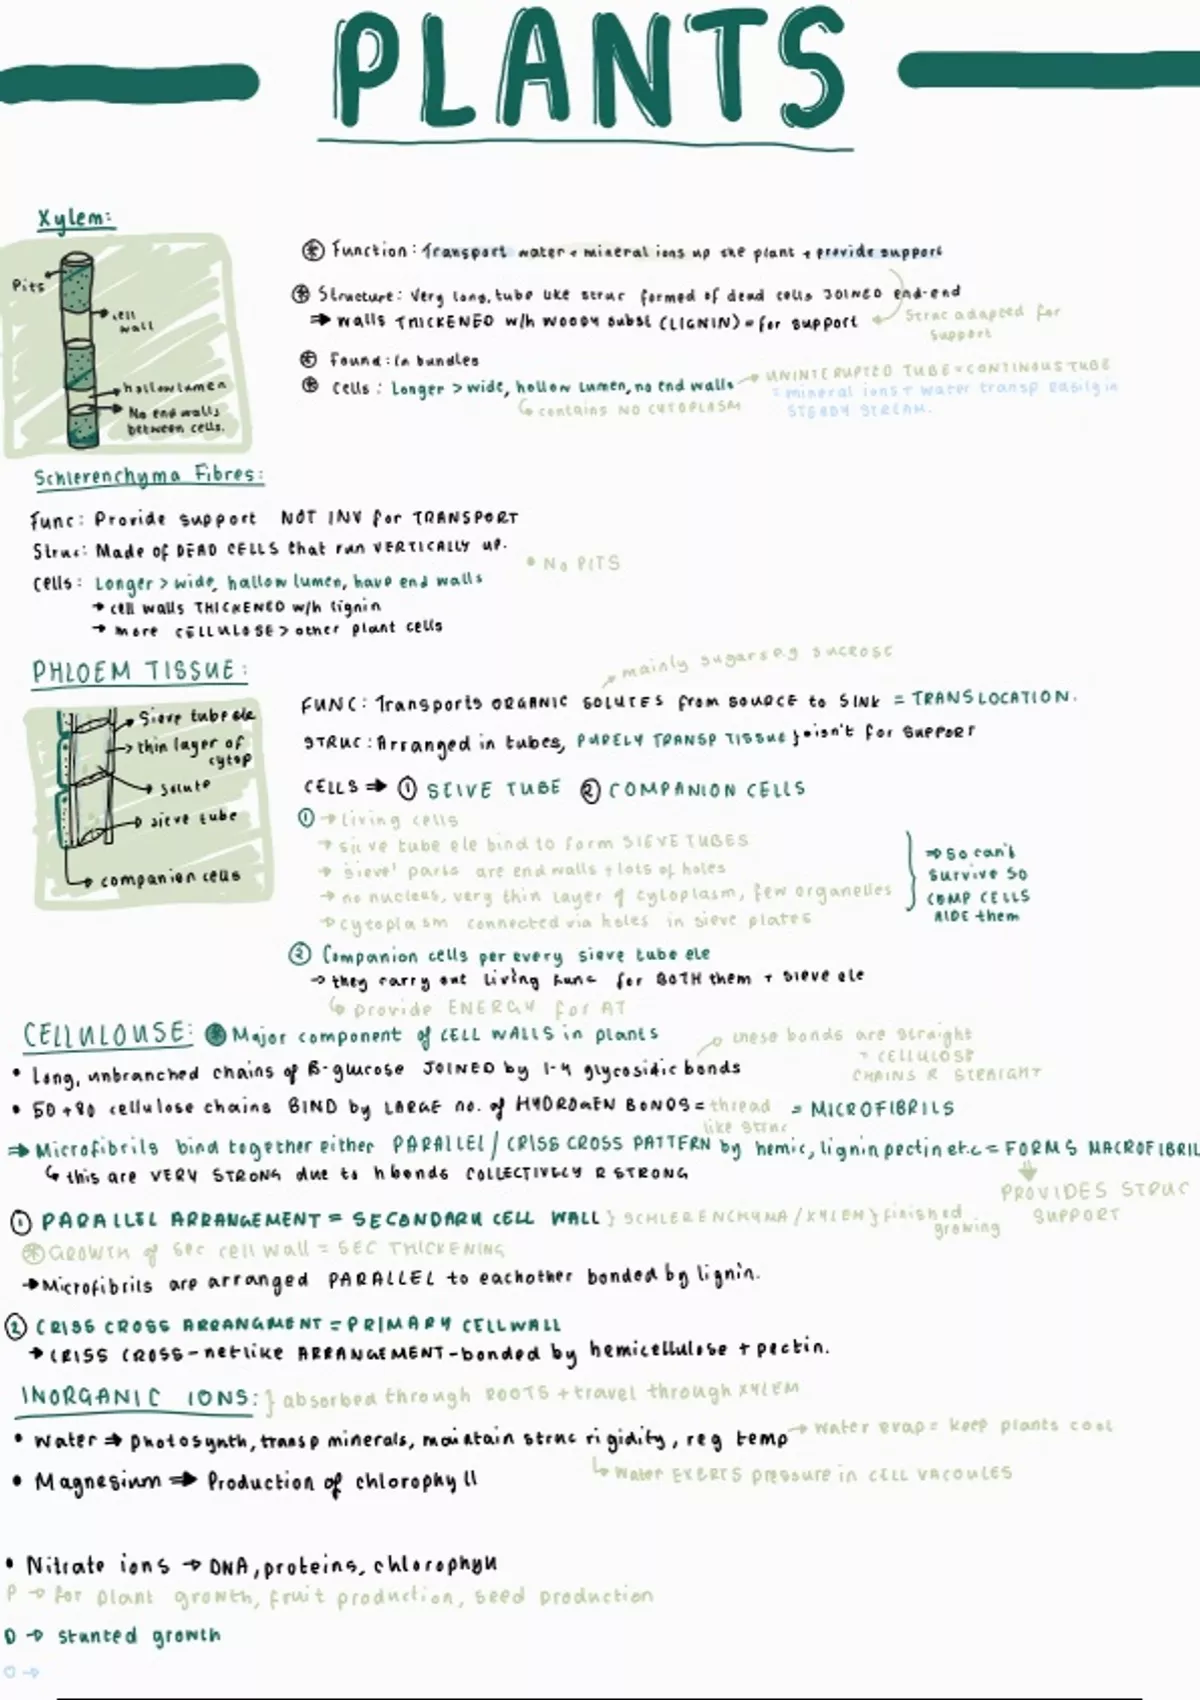 PLANTS
Xylem:
Pits
cell
wall
hollow lumen
No end walls
between cells.
Function: Transport water + mineral ions up the plant + provide support
Structure: Very long, tube like struc formed of dead cells JOINED end-end
⇒ walls THICKENED w/h WOODY subst (LIGNIN) = for support
Struc adapted for
support
Found: In bundles
Cells: Longer > wide, hollow lumen, no end walls
→ UNINTERUPTED TUBE = CONTINOUS TUBE
= mineral ions + water transp easily in
STEADY STREAM.
↳ contains NO CYTOPLASM
Schlerenchyma Fibres:
Func: Provide support NOT INV for TRANSPORT
Struc: Made of DEAD CELLS that run VERTICALLY UP.
• No PITS
Cells: Longer > wide, hallow lumen, have end walls
→ cell walls THICKENED w/h lignin
→ more CELLULOSE > other plant cells
PHLOEM TISSUE:
Sieve tube ele
thin layer of
cytop
solute
sieve tube
companion cells
mainly sugars eg sucrose
FUNC: Transports ORGANIC SOLUTES from SOURCE to SINK = TRANSLOCATION.
STRUC: Arranged in tubes, PURELY TRANSP TISSUE } isn't for SUPPORT
CELLS ⇒ ① SEIVE TUBE ② COMPANION CELLS
① → living cells
→ sieve tube ele bind to form SIEVE TUBES
→ 'sieve' parts are end walls + lots of holes
→ no nucleus, very thin layer of cytoplasm, few organelles
→ cytoplasm connected via holes in sieve plates
⇒ So can't
survive so
COMP CELLS
AIDE them
② Companion cells per every sieve tube ele
→ they carry out living func for BOTH them + sieve ele
↳ provide ENERGY for AT
CELLULOUSE: Major component of CELL WALLS in plants
these bonds are straight
= CELLULOSE
CHAINS R STRAIGHT
• Long, unbranched chains of B-glucose JOINED by 1-4 glycosidic bonds
• 50+80 cellulose chains BIND by LARGE no. of HYDROGEN BONDS = thread like struc = MICROFIBRILS
⇒ Microfibrils bind together either PARALLEL / CRISS CROSS PATTERN by hemic, lignin pectin etc = FORMS MACROFIBRIL
↳ this are VERY STRONG due to h bonds COLLECTIVELY R STRONG
PROVIDES STRUC
SUPPORT
① PARALLEL ARRANGEMENT = SECONDARY CELL WALL } SCHLERENCHYMA / XYLEM } finished growing
GROWTH of sec cell wall = SEC THICKENING
→ Microfibrils are arranged PARALLEL to eachother bonded by lignin.
② CRISS CROSS ARRANGMENT = PRIMARY CELL WALL
→ CRISS CROSS - netlike ARRANGEMENT - bonded by hemicellulose + pectin.
INORGANIC IONS: } absorbed through ROOTS + travel through XYLEM
• Water ⇒ photosynth, transp minerals, maintain struc rigidity, reg temp → Water evap = keep plants cool
↳ Water EXERTS pressure in CELL VACOULES
• Magnesium ⇒ Production of chlorophyll
• Nitrate ions → DNA, proteins, chlorophyll
P → for plant growth, fruit production, seed production
D → stunted growth
O →